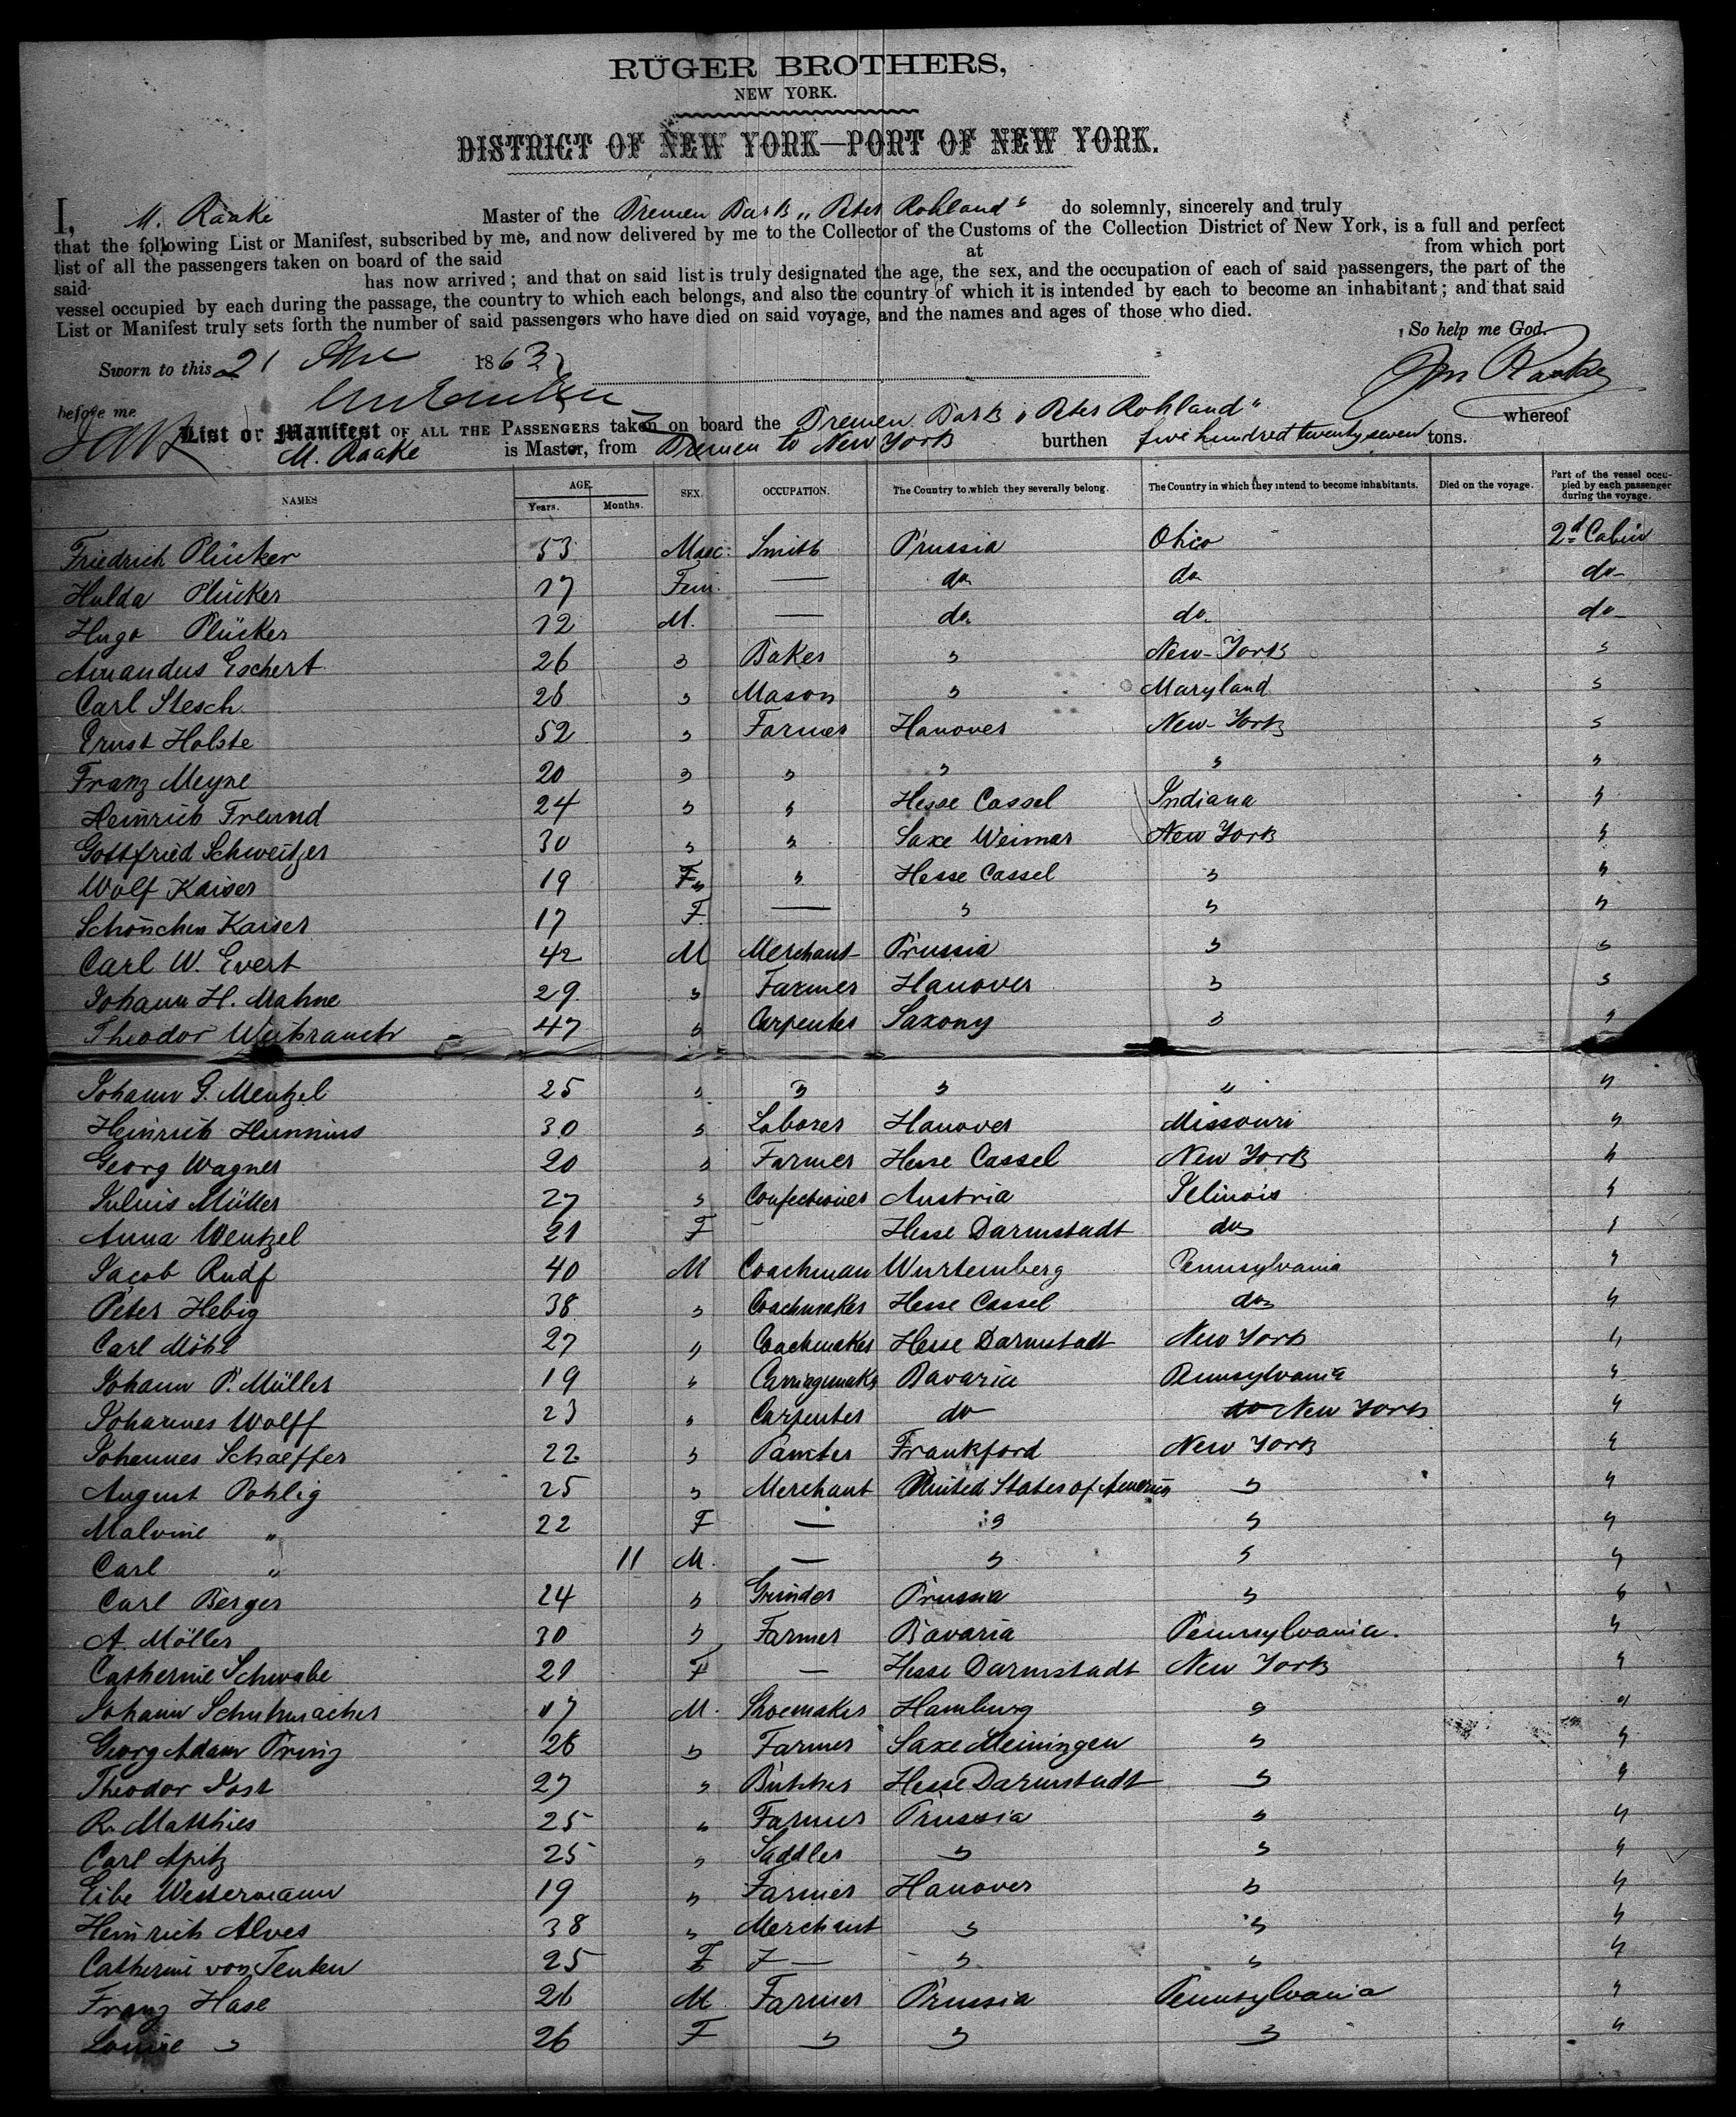 RÜGER BROTHERS,
NEW YORK.
DISTRICT OF NEW YORK—PORT OF NEW YORK.
I, M. Raake Master of the Bremen Bark „Peter Rohland“ do solemnly, sincerely and truly
that the following List or Manifest, subscribed by me, and now delivered by me to the Collector of the Customs of the Collection District of New York, is a full and perfect
list of all the passengers taken on board of the said at from which port
said has now arrived; and that on said list is truly designated the age, the sex, and the occupation of each of said passengers, the part of the
vessel occupied by each during the passage, the country to which each belongs, and also the country of which it is intended by each to become an inhabitant; and that said
List or Manifest truly sets forth the number of said passengers who have died on said voyage, and the names and ages of those who died.
So help me God.
Sworn to this 21 1863
before me
List or Manifest OF ALL THE PASSENGERS taken on board the Bremen Bark „Peter Rohland“ whereof
M. Raake is Master, from Bremen to New York burthen five hundred twenty seven tons.
NAMES AGE. Years. Months. SEX. OCCUPATION. The Country to which they severally belong. The Country in which they intend to become inhabitants. Died on the voyage. Part of the vessel occupied by each passenger during the voyage.
Friedrich Plücker 53 Masc: Smith Prussia Ohio 2d Cabin
Hulda Plücker 17 Fem. — do do do
Hugo Plücker 12 M. — do do do
Amandus Eschert 26 " Baker " New-York "
Carl Stesch 26 " Mason " Maryland "
Ernst Holste 52 " Farmer Hanover New-York "
Franz Meyne 20 " " " " "
Heinrich Freund 24 " " Hesse Cassel Indiana "
Gottfried Schweitzer 30 " " Saxe Weimar New York "
Wolf Kaiser 19 F" " Hesse Cassel " "
Schönchen Kaiser 17 F. — " " "
Carl W. Evert 42 M Merchant Prussia " "
Johann H. Mahne 29 " Farmer Hanover " "
Theodor Weihrauch 47 " Carpenter Saxony " "
Johann G. Mentzel 25 " " " " "
Heinrich Hunnius 30 " Laborer Hanover Missouri "
Georg Wagner 20 " Farmer Hesse Cassel New York "
Julius Müller 27 " Confectioner Austria Illinois "
Anna Wentzel 21 F - Hesse Darmstadt do "
Jacob Rudf 40 M Coachman Wurtemberg Pennsylvania "
Peter Hebig 38 " Coachmaker Hesse Cassel do "
Carl Möhl 27 " Coachmaker Hesse Darmstadt New York "
Johann P. Müller 19 " Carriagemakr Bavaria Pennsylvania "
Johannes Wolff 23 " Carpenter do do New York "
Johannes Schaeffer 22 " Painter Frankford New York "
August Pohlig 25 " Merchant United States of America " "
Malvine " 22 F — " " "
Carl " 11 M. — " " "
Carl Berger 24 " Grinder Prussia " "
A. Möller 30 " Farmer Bavaria Pennsylvania. "
Catherine Schwabe 21 F — Hesse Darmstadt New York "
Johann Schuhmacher 17 M. Shoemaker Hamburg " "
Georg Adam Prinz 26 " Farmer Saxe Meiningen " "
Theodor Jost 27 " Butcher Hesse Darmstadt " "
R. Matthies 25 " Farmer Prussia " "
Carl Apitz 25 " Saddler " " "
Eibe Westermann 19 " Farmer Hanover " "
Heinrich Alves 38 " Merchant " " "
Catherine von Tenten 25 F — " " "
Franz Hase 26 M Farmer Prussia Pennsylvania "
Louise " 26 F " " " "